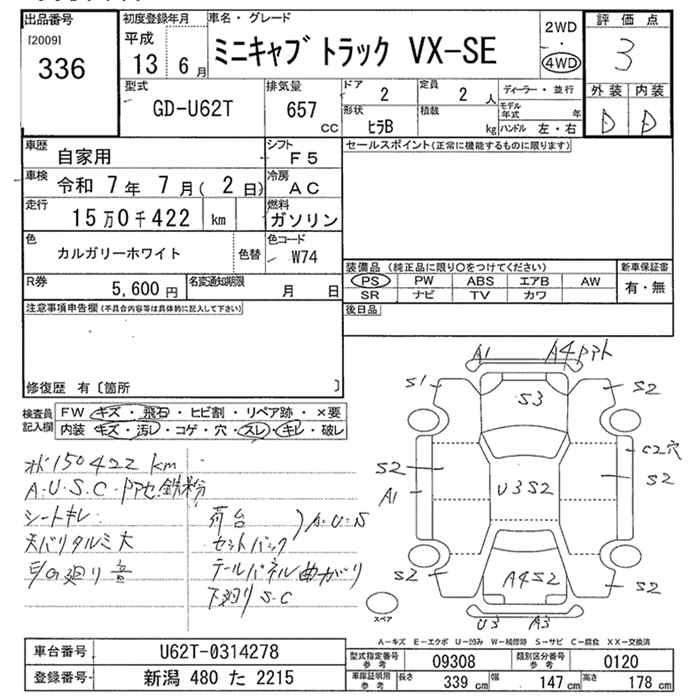 出品番号
[2009]
336
初度登録年月
平成
13 6 月
車名・グレード
ミニキャブ トラック VX-SE
2WD
・
4WD
評価点
3
外装 内装
D D
型式
GD-U62T
排気量
657 cc
ドア
2
定員
2 人
ディーラー・並行
形状
ヒラB
積載
kg
モデル年式 年
ハンドル 左・右
車歴
自家用
シフト
F5
車検
令和 7 年 7 月 ( 2 日)
冷房
AC
走行
15 万 0 千 422 km
燃料
ガソリン
色
カルガリーホワイト
色替
色コード
W74
R券
5,600 円
名変通知期限
月 日
セールスポイント(正常に機能するものに限ります)
装備品 (純正品に限り〇をつけてください)
新車保証書
PS PW ABS エアB AW
SR ナビ TV カワ
有・無
後日品
注意事項申告欄 (不具合内容等は具体的に記入して下さい)
修復歴 有 〔箇所 〕
検査員記入欄
FW キズ・飛石・ヒビ割・リペア跡・×要
内装 キズ・汚レ・コゲ・穴・スレ・キレ・破レ
150422 km
A・U・S・C
シートキレ
天バリタルミ大
荷台 A・U・S
セットバック
テールパネル曲がり
下廻り S・C
A1
S1
S3
S2
C2穴
S2
A1
U3S2
S2
S2
A4S2
S2
U3
A3
スペア
A-キズ E-エクボ U-凹み W-補修跡 S-サビ C-腐食 XX-交換済
車台番号
U62T-0314278
登録番号
新潟 480 た 2215
型式指定番号 参考
09308
類別区分番号 参考
0120
車庫証明用 参考
長さ 339 cm
幅 147 cm
高さ 178 cm